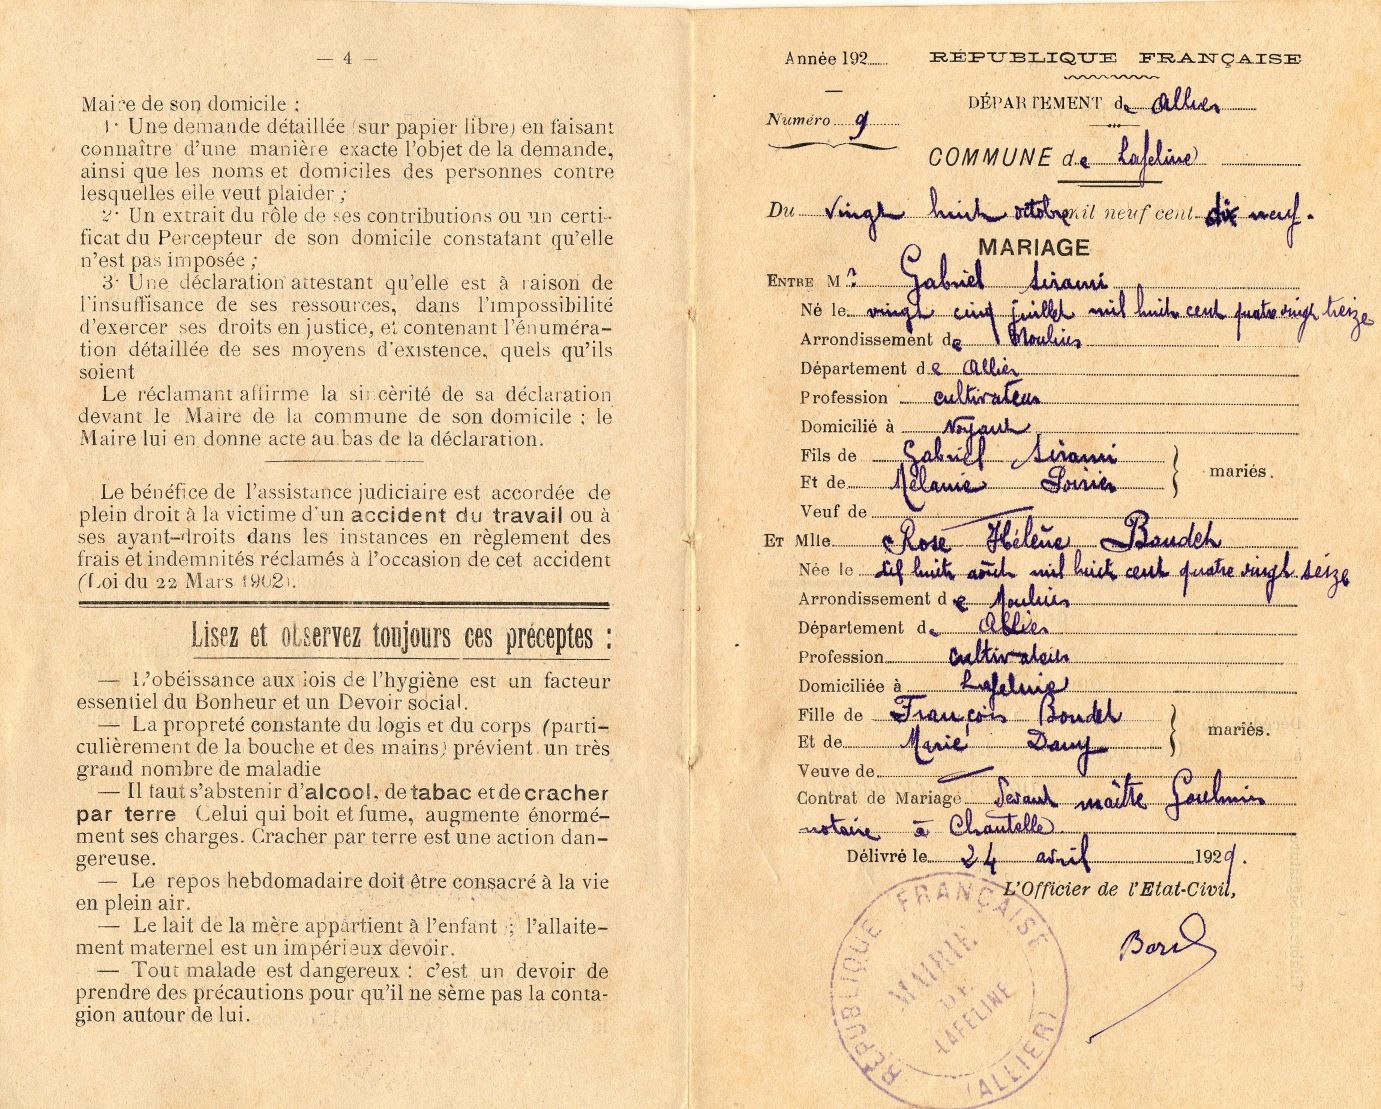 — 4 —
Maire de son domicile :
1· Une demande détaillée (sur papier libre) en faisant
connaître d'une manière exacte l'objet de la demande,
ainsi que les noms et domiciles des personnes contre
lesquelles elle veut plaider ;
2· Un extrait du rôle de ses contributions ou un certi-
ficat du Percepteur de son domicile constatant qu'elle
n'est pas imposée ;
3· Une déclaration attestant qu'elle est à raison de
l'insuffisance de ses ressources, dans l'impossibilité
d'exercer ses droits en justice, et contenant l'énuméra-
tion détaillée de ses moyens d'existence, quels qu'ils
soient
Le réclamant affirme la sincèrité de sa déclaration
devant le Maire de la commune de son domicile ; le
Maire lui en donne acte au bas de la déclaration.
Le bénéfice de l'assistance judiciaire est accordée de
plein droit à la victime d'un accident du travail ou à
ses ayant-droits dans les instances en règlement des
frais et indemnités réclamés à l'occasion de cet accident
(Loi du 22 Mars 1902).
Lisez et observez toujours ces préceptes :
— L'obéissance aux lois de l'hygiène est un facteur
essentiel du Bonheur et un Devoir social.
— La propreté constante du logis et du corps (parti-
culièrement de la bouche et des mains) prévient un très
grand nombre de maladie
— Il faut s'abstenir d'alcool, de tabac et de cracher
par terre Celui qui boit et fume, augmente énormé-
ment ses charges. Cracher par terre est une action dan-
gereuse.
— Le repos hebdomadaire doit être consacré à la vie
en plein air.
— Le lait de la mère appartient à l'enfant ; l'allaite-
ment maternel est un impérieux devoir.
— Tout malade est dangereux : c'est un devoir de
prendre des précautions pour qu'il ne sème pas la conta-
gion autour de lui.
Année 192
RÉPUBLIQUE FRANÇAISE
DÉPARTEMENT de Allier
Numéro 9
COMMUNE de Lafeline
Du vingt huit octobre mil neuf cent dix neuf.
MARIAGE
ENTRE Mr Gabriel Sirami
Né le vingt cinq juillet mil huit cent quatre vingt treize
Arrondissement de Moulins
Département de Allier
Profession cultivateur
Domicilié à Noyant
Fils de Gabriel Sirami
Et de Mélanie Poirier
mariés.
Veuf de
ET Mlle Rose Hélène Boudet
Née le dix huit août mil huit cent quatre vingt seize
Arrondissement de Moulins
Département de Allier
Profession cultivateur
Domiciliée à Lafeline
Fille de François Boudet
Et de Marie Dauy
mariés.
Veuve de
Contrat de Mariage Devant maître Goulmin
notaire à Chantelle
Délivré le 24 avril 1929.
L'Officier de l'Etat-Civil,
RÉPUBLIQUE FRANÇAISE
MAIRIE
DE
LAFELINE
(ALLIER)